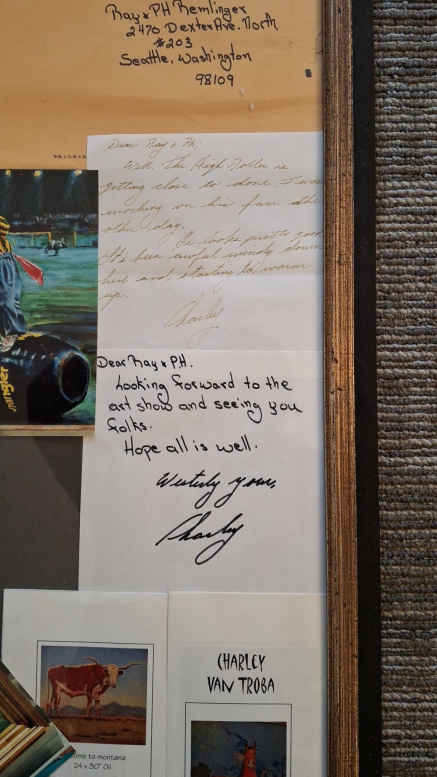 Ray & PH Remlinger
2470 Dexter Ave. North
#203
Seattle, Washington
98109
Dear Ray & PH,
Well, The High Roller is
getting close to done. I was
working on his face the
other day.
He looks pretty good
It's been awful windy down
here and starting to warm
up.
Charley
Dear Ray & PH.
Looking forward to the
art show and seeing you
folks.
Hope all is well.
Westerly yours,
Charley
CHARLEY
VAN TROBA
me to montana
24 x 30" Oil